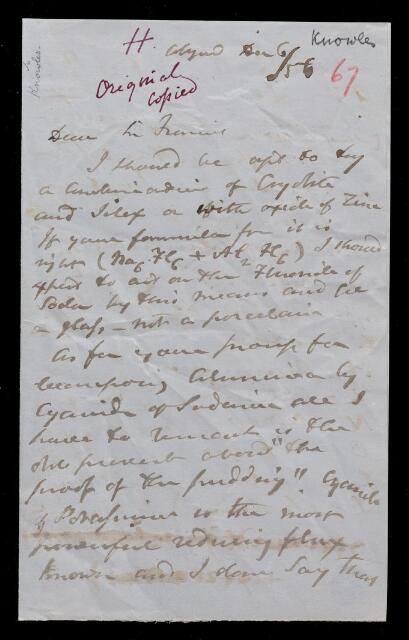 H.
Dec 6/56
Knowles
67
Knowles.
Original
Copied
Dear Sir Francis
I should be apt to try
a combination of Cryolite
and Silex or with oxide of Zinc
If your formula for it is
right ( Na6 Fl6 + Al2 Fl6 ) I should
expect to act on the Fluoride of
Soda by this means and get
a glass - not a porcelain
As for your process for
decomposing Alumina by
Cyanide of Sodium all I
have to remark is the
old proverb about "the
proof of the pudding" Cyanide
of Potassium is the most
powerful reducing flux
known and I dare say that